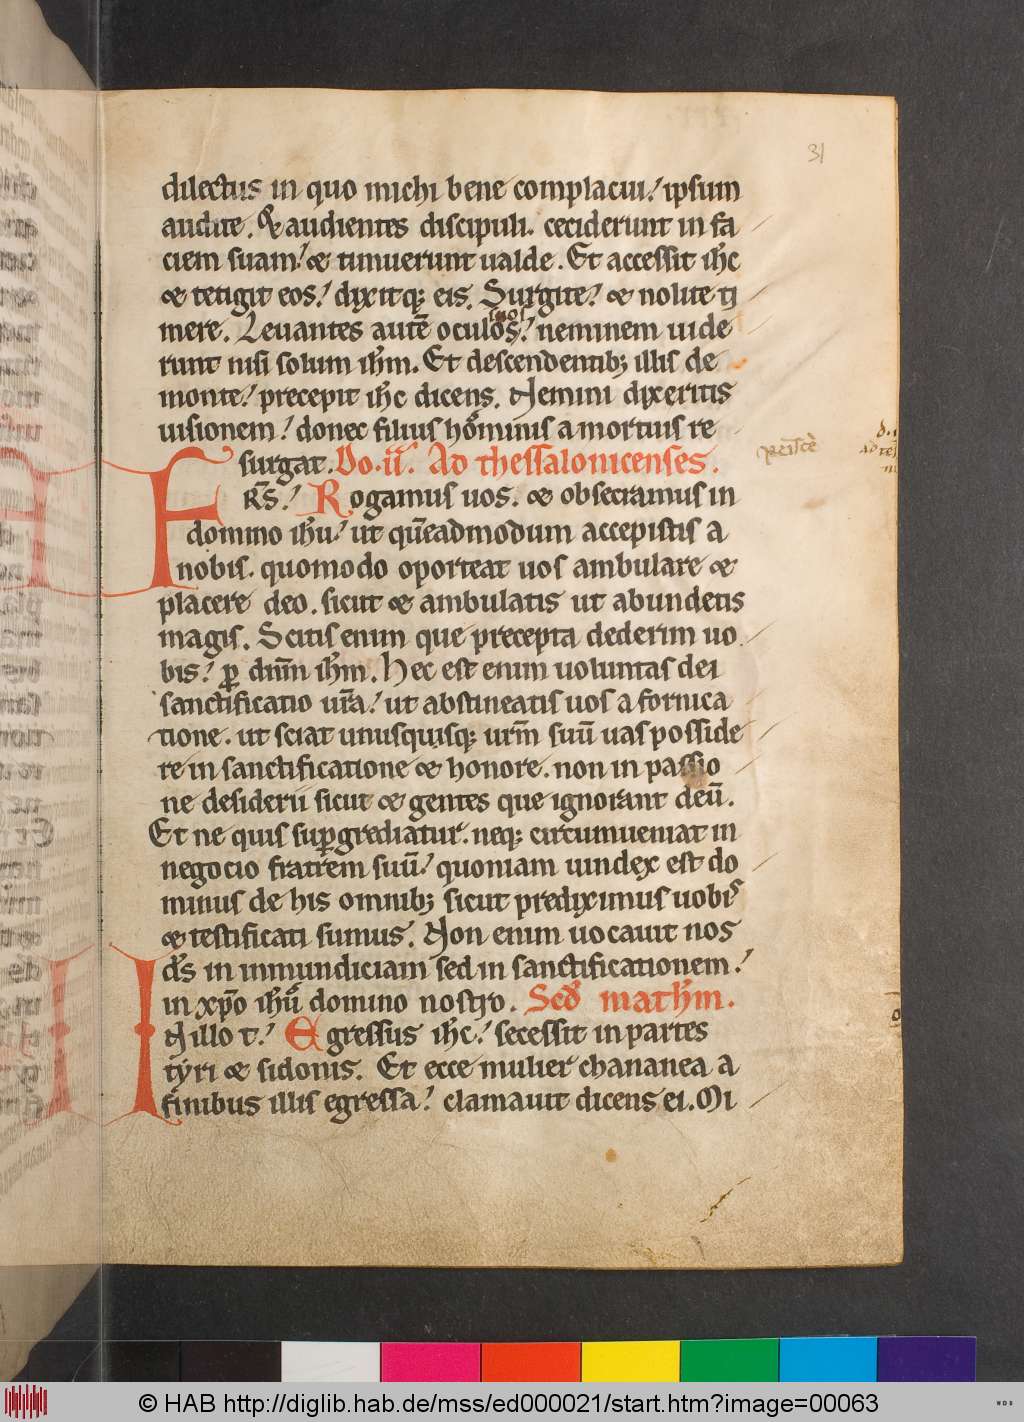 31
dilectus in quo michi bene complacui. ipsum
audite. & audientes discipuli. ceciderunt in fa
ciem suam. & timuerunt ualde. Et accessit ih̅c
& tetigit eos. dixitq; eis. Surgite. & nolite ti
mere. Leuantes aute̅ oculos suos. neminem uide
runt nisi solum ih̅m. Et descendentib; illis de
monte. precepit ih̅c dicens. Nemini dixeritis
uisionem. donec filius hominis a mortuis re
surgat. Do. ii. Ad thessalonicenses.
FR̅S. Rogamus uos. & obsecramus in
domino ih̅u. ut que̅admodum accepistis a
nobis. quomodo oporteat uos ambulare &
placere deo. sicut & ambulatis ut abundetis
magis. Scitis enim que precepta dederim uo
bis. ꝑ dn̅m ih̅m. Hec est enim uoluntas dei
sanctificatio ur̅a. ut abstineatis uos a fornica
tione. ut sciat unusquisq; ur̅m suu̅ uas posside
re in sanctificatione & honore. non in passio
ne desiderii sicut & gentes que ignorant deu̅.
Et ne quis suꝑgrediatur. neq; circumueniat in
negocio fratrem suu̅. quoniam uindex est do
minus de his omnib; sicut prediximus uobis
& testificati sumus. Non enim uocauit nos
d̅s in inmundiciam sed in sanctificationem.
in xp̅o ih̅u domino nostro. Sed̅ math̅m.
IN illo t. Egressus ih̅c. secessit in partes
tyri & sidonis. Et ecce mulier chananea a
finibus illis egressa. clamauit dicens ei. Mi
© HAB http://diglib.hab.de/mss/ed000021/start.htm?image=00063